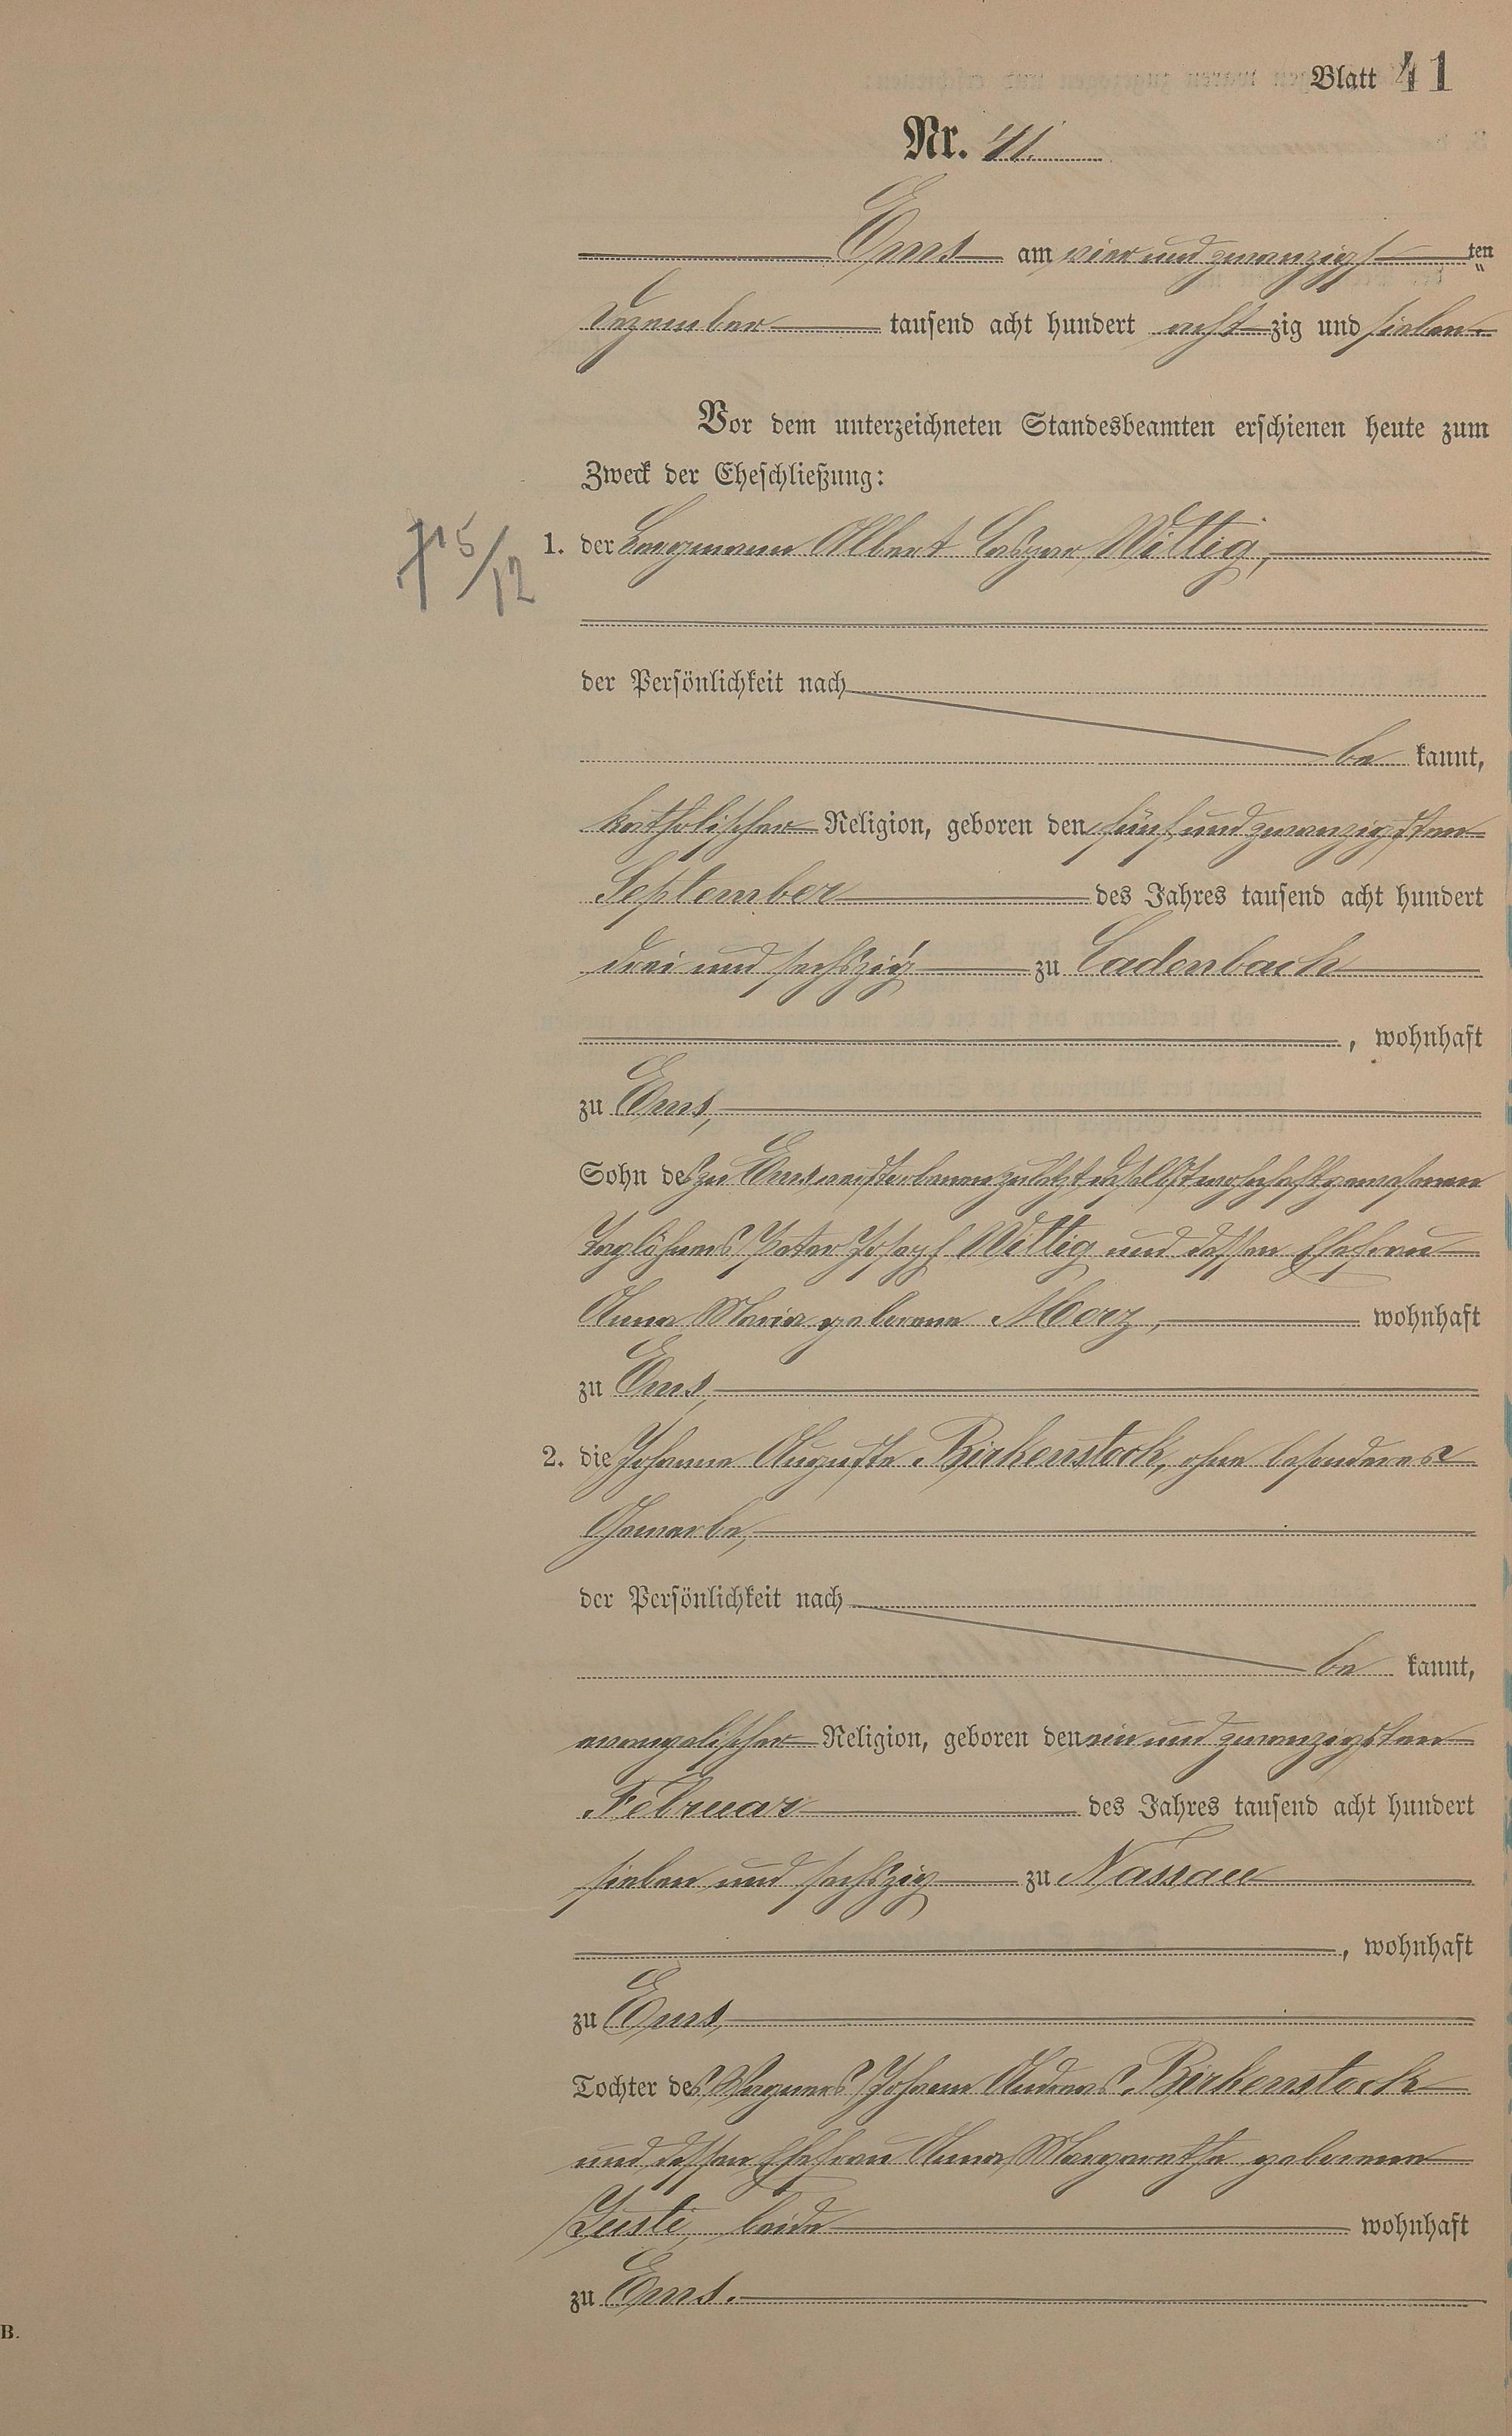 Blatt 41
Nr. 41.
Ems am vier und zwanzigsten
Dezember tausend acht hundert achtzig und sieben.
Vor dem unterzeichneten Standesbeamten erschienen heute zum
Zweck der Eheschließung:
1. der Bergmann Albert Caspar Wittig,
15/12
der Persönlichkeit nach
be kannt,
katholischer Religion, geboren den fünf und zwanzigsten
September des Jahres tausend acht hundert
drei und sechszig zu Cadenbach
, wohnhaft
zu Ems,
Sohn des zu Ems verstorbenen zuletzt daselbst wohnhaft gewesenen
Taglöhners Peter Joseph Wittig und dessen Ehefrau
Anna Maria geborene Merz, wohnhaft
zu Ems,
2. die Johanna Auguste Birkenstock, ohne besonderes
Gewerbe,
der Persönlichkeit nach
be kannt,
evangelischer Religion, geboren den ein und zwanzigsten
Februar des Jahres tausend acht hundert
sieben und sechszig zu Nassau
, wohnhaft
zu Ems,
Tochter des Wagners Johann Andreas Birkenstock
und dessen Ehefrau Anna Margarethe geborene
Justi, beide wohnhaft
zu Ems.
B.